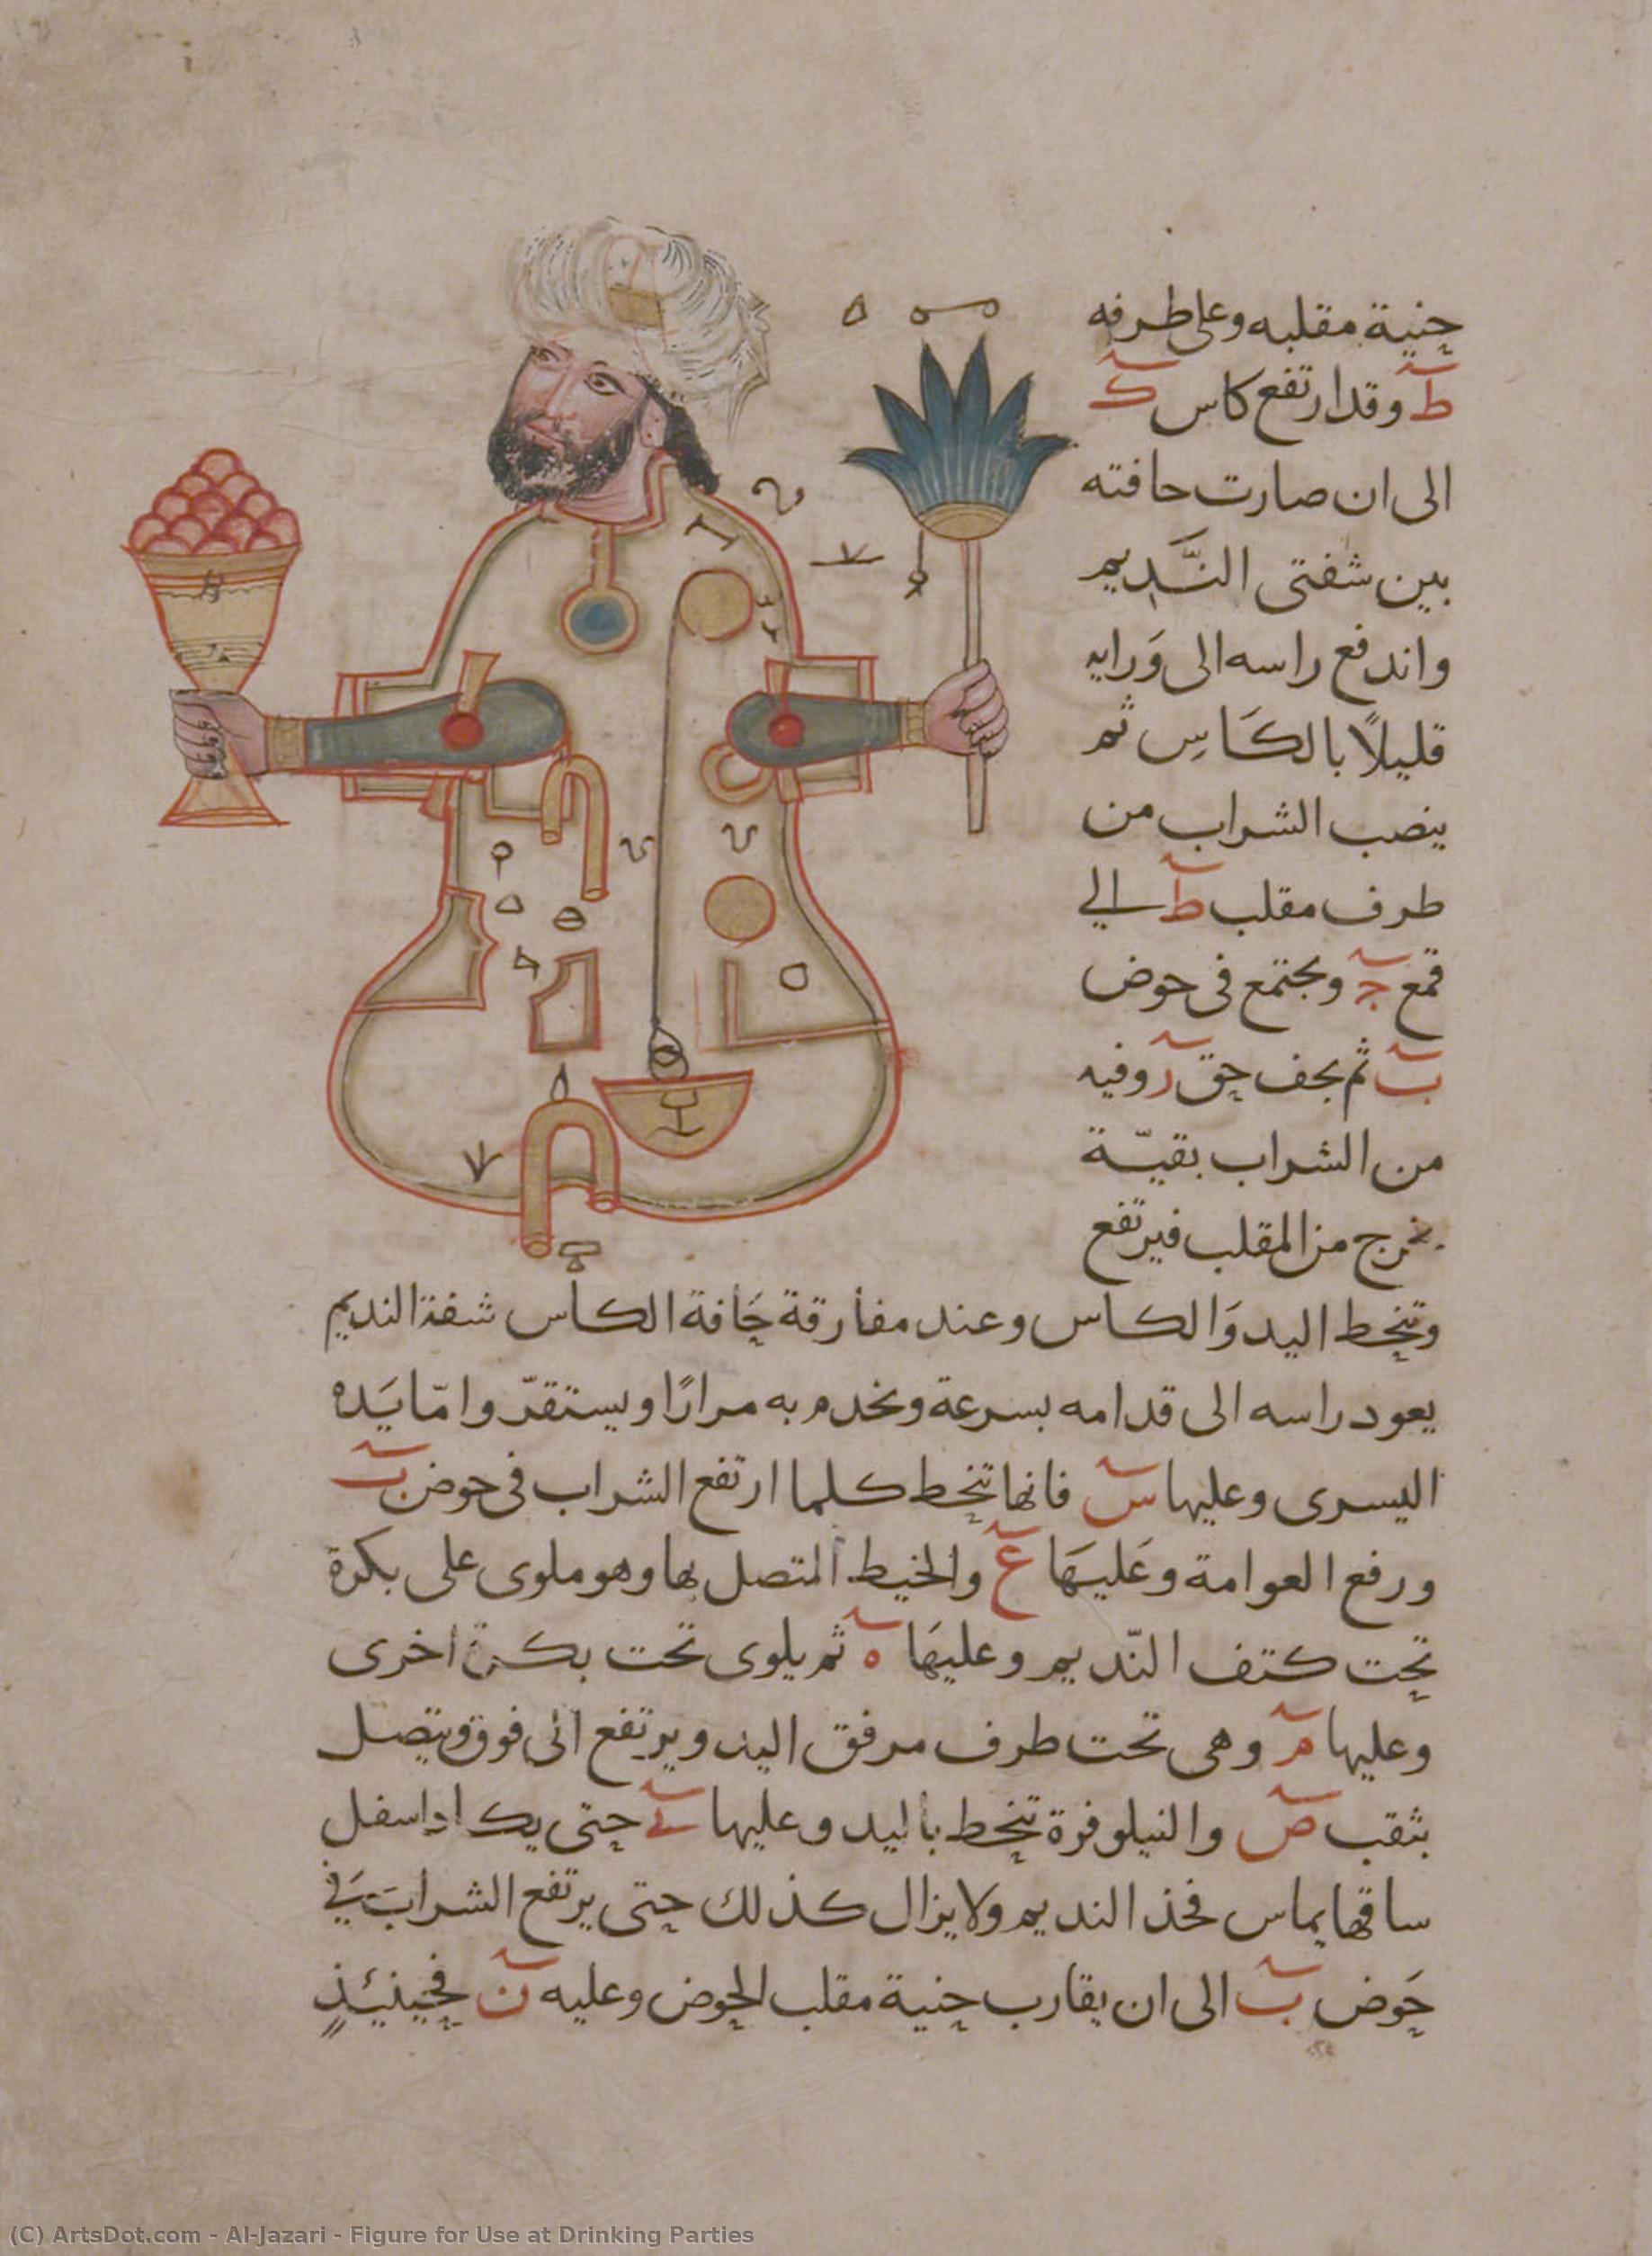 حنية مقلبه وعلى طرفه
ط وقد ارتفع كاس ك
الى ان صارت حافته
بين شفتى النَّديم
واندفع راسه الى وَرايه
قليلاً بالكَاسِ ثم
ينصب الشراب من
طرف مقلب ط الي
قمع ج ويجتمع فى حوض
ب ثم يجف حق ر وفيه
من الشراب بقيّة
يخرج من المقلب فيرتفع
وتنحط اليد وَالكاس وعند مفارقة حَافة الكأس شفة النديم
يعود راسه الى قدامه بسرعة ويخدم به مرارًا ويستقرّ وامّا يَده
اليسرى وعليها س فانها تنحط كلما ارتفع الشراب فى حوض ب
ورفع العوامة وعَليهَا ع والخيط المتصل بها وهو ملوى على بكرة
تحت كتف النّديم وعليهَا ه ثم يلوى تحت بكرة اخرى
وعليها م وهى تحت طرف مرفق اليد ويرتفع الى فوق ويتصل
بثقب ص والنيلوفرة تنحط باليد وعليها حتى يكاد اسفل
ساقها يماس فخذ النديم ولا يزال كذلك حتى يرتفع الشراب في
حَوض ب الى ان يقارب حنية مقلب الحوض وعليه ن فحينئذٍ
(C) ArtsDot.com - Al-Jazari - Figure for Use at Drinking Parties